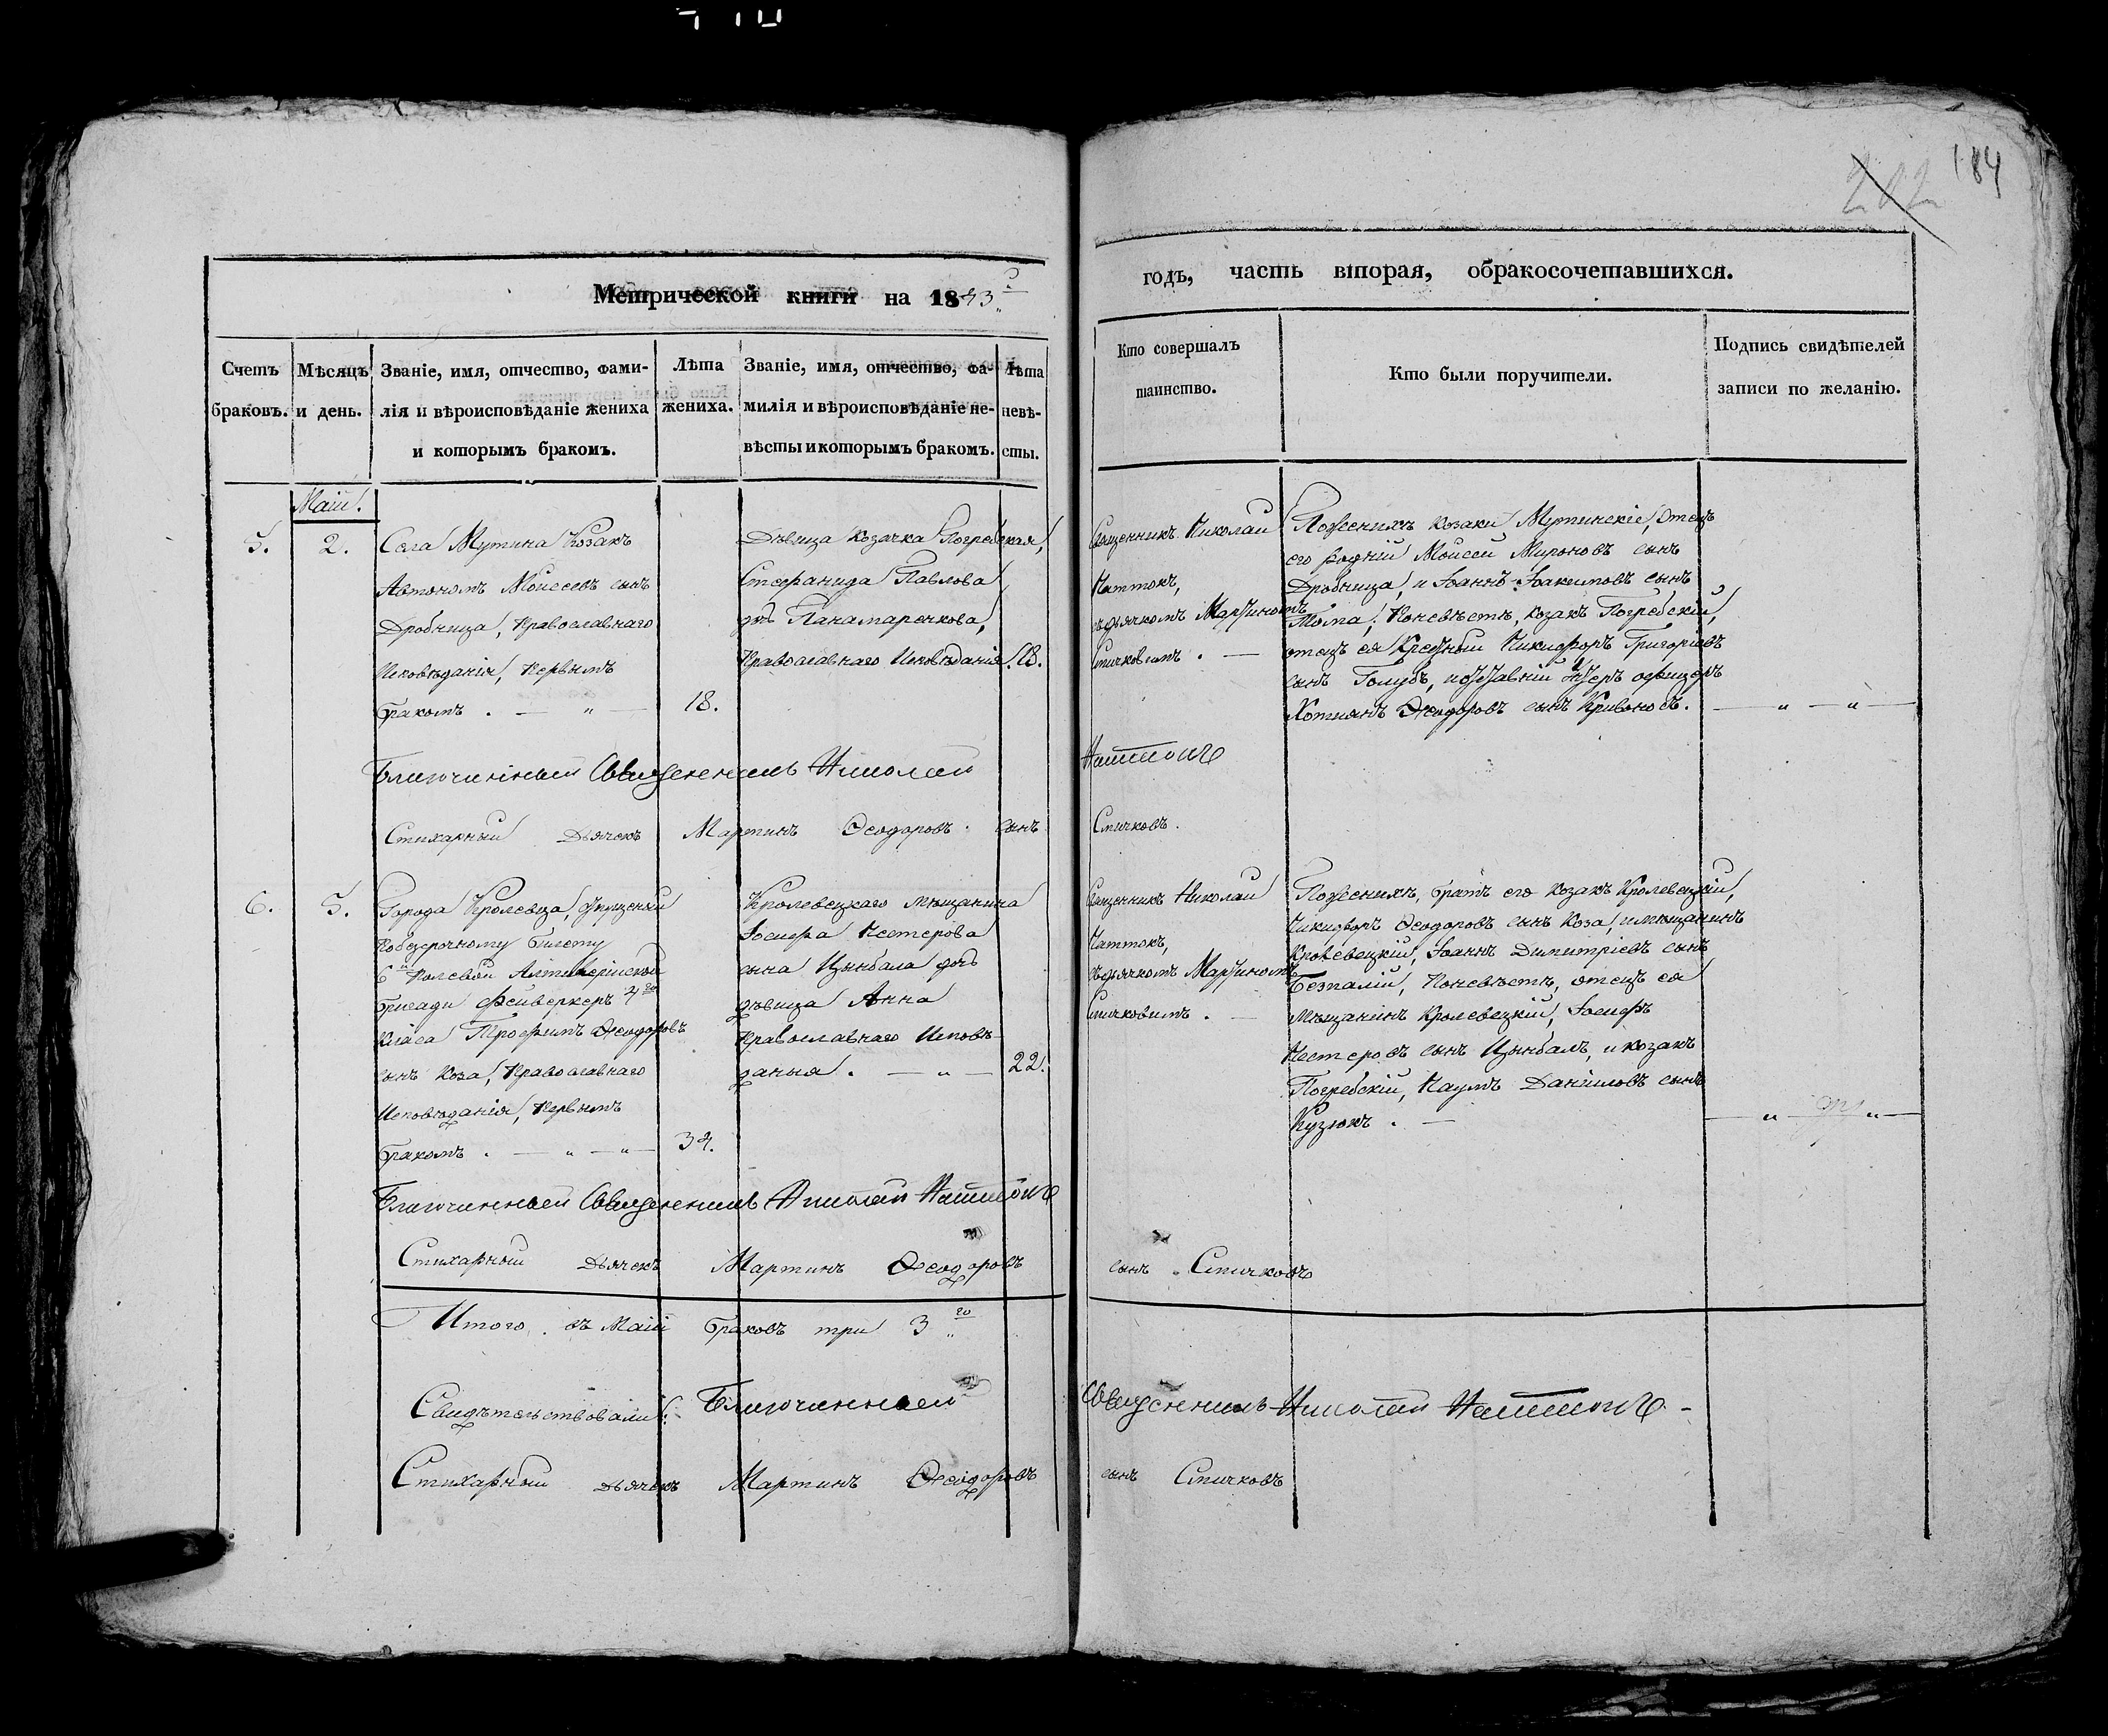 202 184
Метрической книги на 1843
годъ, часть вторая, обракосочетавшихся.
Счетъ браковъ.
Мѣсяцъ и день.
Званіе, имя, отчество, фами-
лія и вѣроисповѣданіе жениха
и которымъ бракомъ.
Лѣта
жениха.
Званіе, имя, отчество, фа-
милія и вѣроисповѣданіе не-
вѣсты и которымъ бракомъ.
Лѣта
невѣ-
сты.
Кто совершалъ
таинство.
Кто были поручители.
Подпись свидѣтелей
записи по желанію.
Маій.
5. 2.
Села Мутина Козакъ
Автономъ Моѵсеевъ сынъ
Дробница, Православнаго
Исповѣданія, первымъ
бракомъ. — „ —
18.
Дѣвица козачка Погребская,
Стефанида Павлова
дочь Панамаренкова,
Православнаго Исповѣданія.
18.
Священникъ Николай
съдьячкомъ Мартиномъ
Спичковимъ. —
Поженихѣ козаки Мутинскіе, Отецъ
его родній Моѵсей Мироновъ сынъ
Дробница, и Іоаннъ Іоакимовъ сынъ
Поневѣстѣ, козакъ Погребскій,
отецъ ея Крестный Никифоръ Григоріевъ
сынъ Голубъ, иотставній Унтеръ офицеръ
Феодоровъ сынъ Кривоносъ. — „ — „ —
Благочинный Священникъ Николай
Стихарный Дьячекъ Мартинъ Ѳеодоровъ сынъ Спичковъ.
6. 5.
Города Кролевца, отпущеный
побезсрочному билету
6й Полевой Артилерійской
бригады фейверкеръ 4го
класа Трофимъ Ѳеодоровъ
сынъ Коза, Православнаго
Исповѣданія, первымъ
бракомъ. — „ — „ —
34.
Кролевецкаго мѣщанина
Іосифа Нестерова
сына Цымбала дочь
дѣвица Анна
Православнаго Исповѣ-
данія. — „ —
22.
Священникъ Николай
съдьячкомъ Мартиномъ
Спичковимъ. —
Поженихѣ, братъ его козакъ Кролевецкій,
Никифоръ Ѳеодоровъ сынъ Коза, имѣщанинъ
Кролевецкій, Іоаннъ Димитріевъ сынъ
Безпалій, Поневѣстѣ, отецъ ея
Мѣщанинъ Кролевецкій, Іосифъ
Нестеровъ сынъ Цымбалъ, и козакъ
Погребскій, Наумъ Даніиловъ сынъ
Кузюкъ. —
Благочинный Священникъ Николай
Стихарный Дьячекъ Мартинъ Ѳеодоровъ сынъ Спичковъ
Итого въ Маіи браковъ три 3
Свидѣтельствовали: Благочинный Священникъ Николай
Стихарный Дьячекъ Мартинъ Ѳеодоровъ сынъ Спичковъ